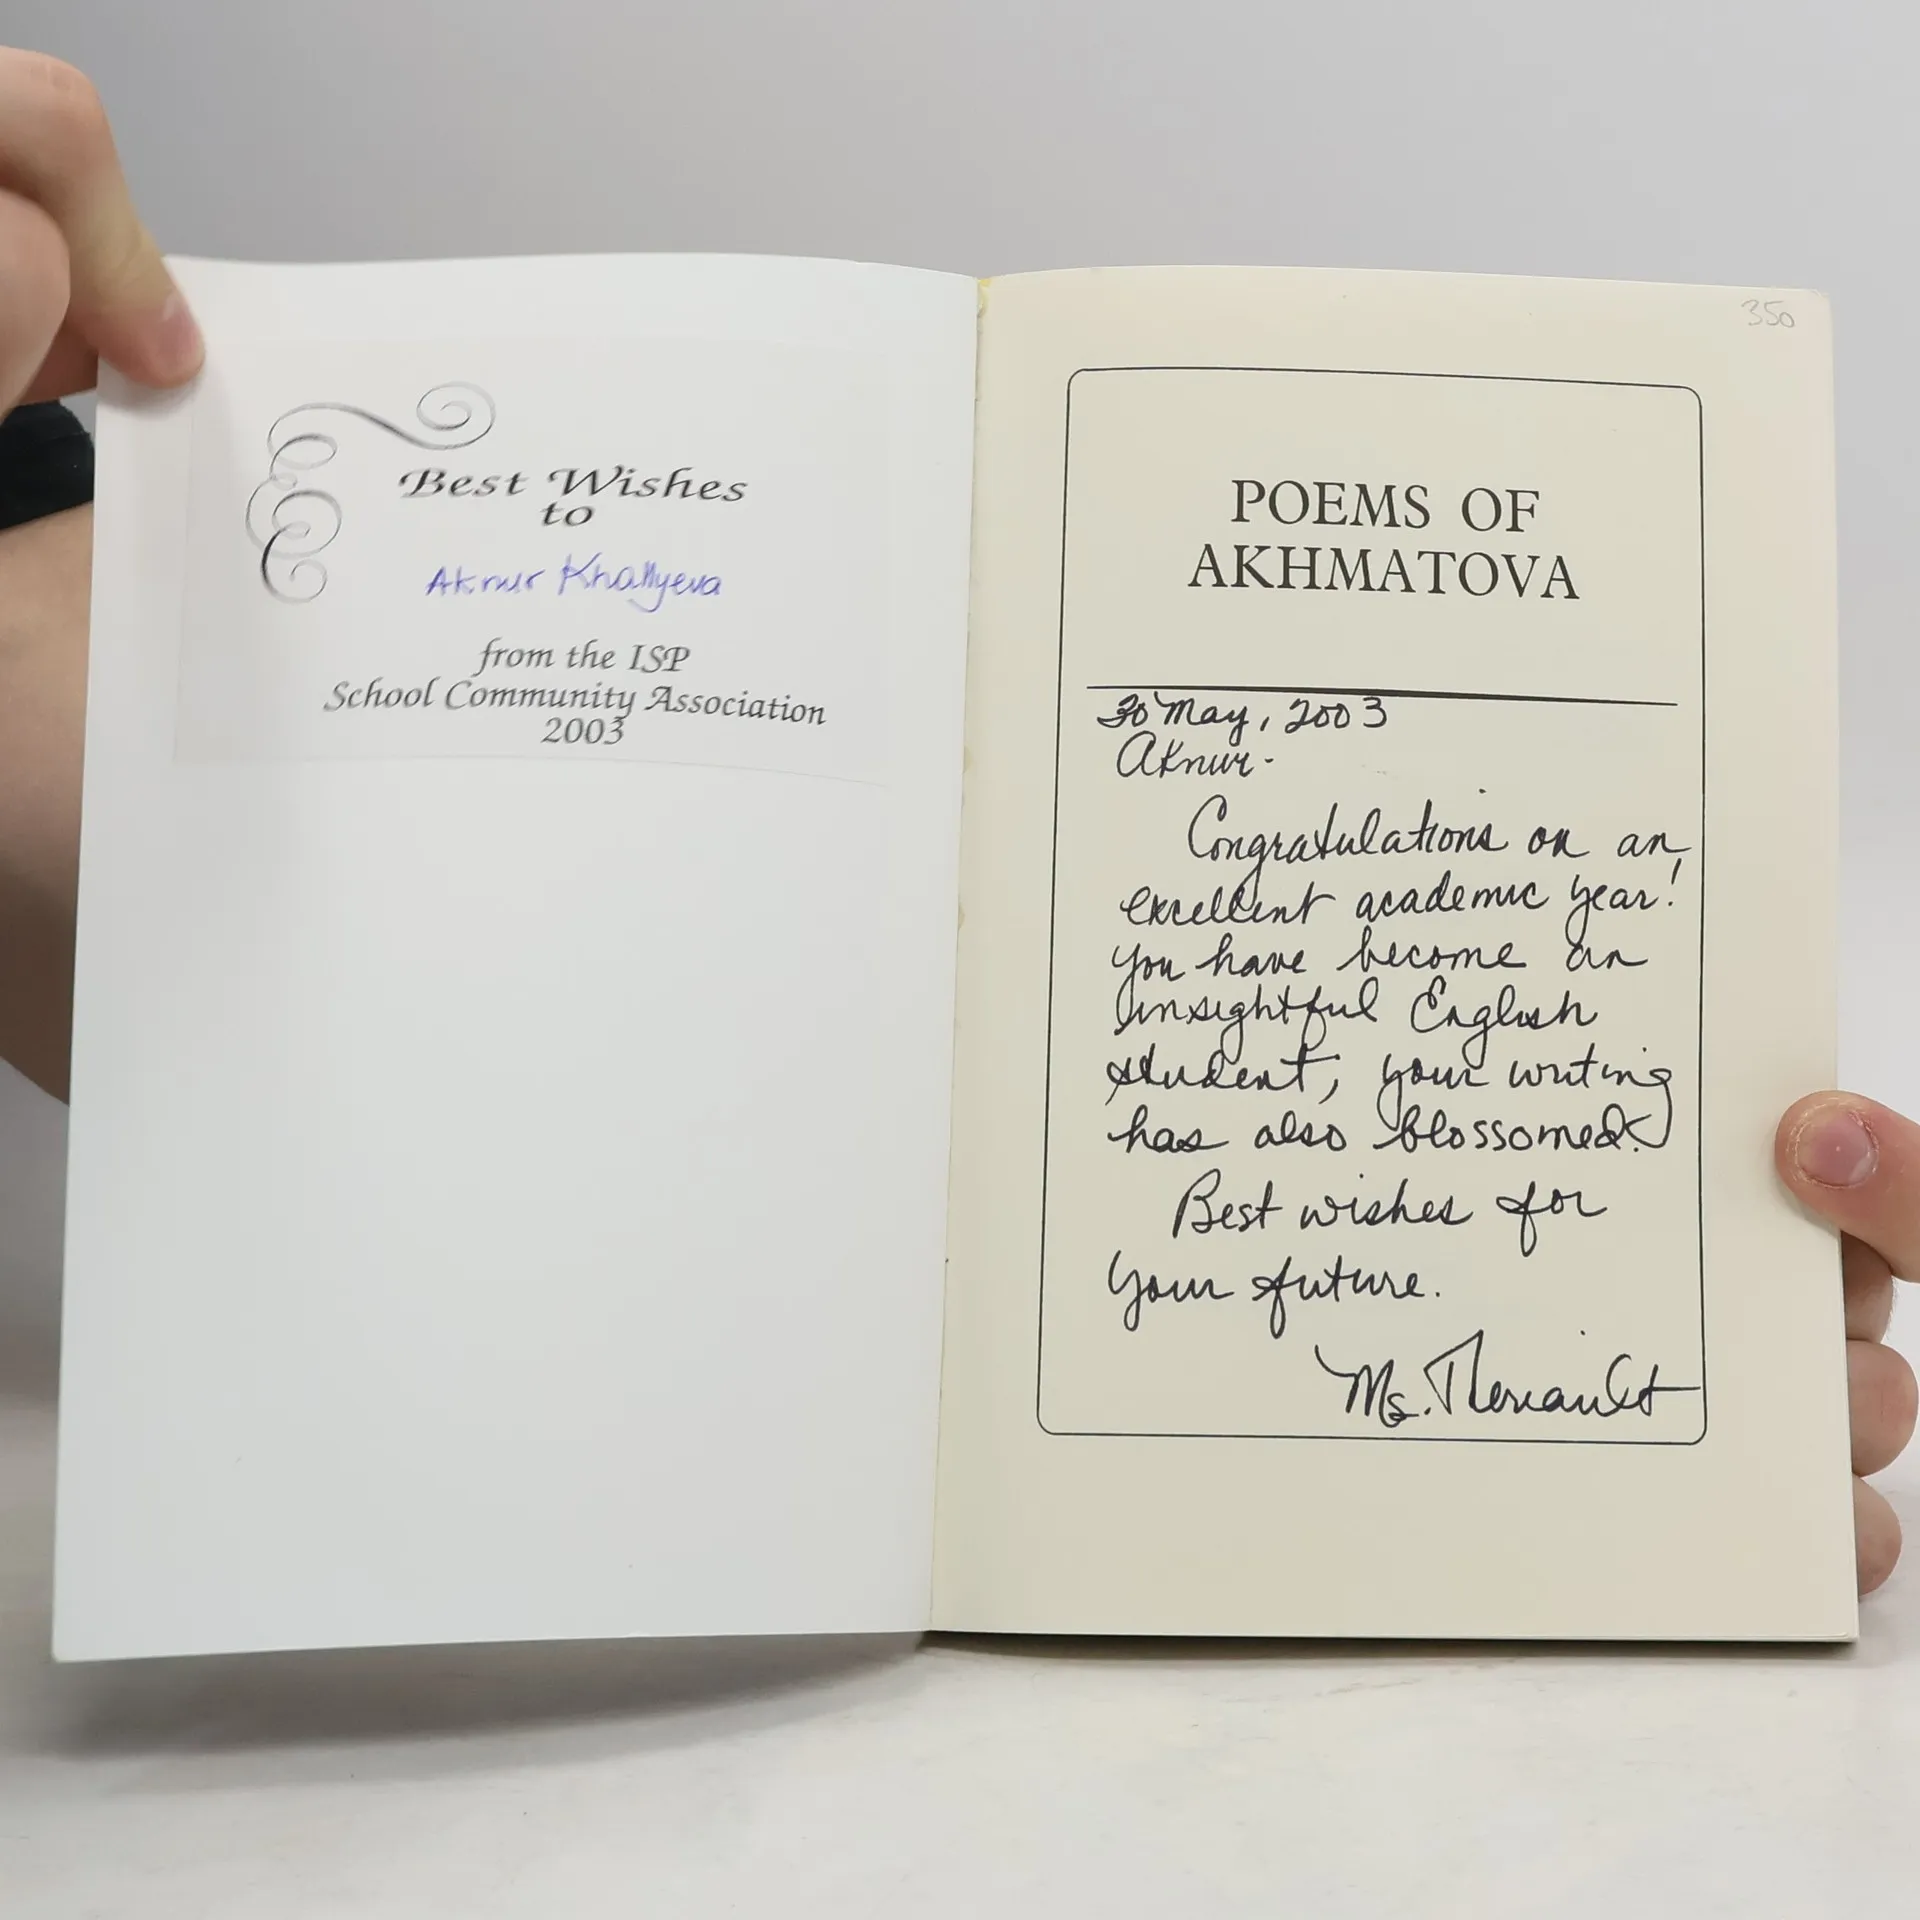 Best Wishes
to
Aknur Khallyeva
from the ISP
School Community Association
2003
350
POEMS OF
AKHMATOVA
30 May, 2003
Aknur-
Congratulations on an
excellent academic year!
You have become an
insightful English
student; your writing
has also blossomed.
Best wishes for
your future.
Ms. Theriault